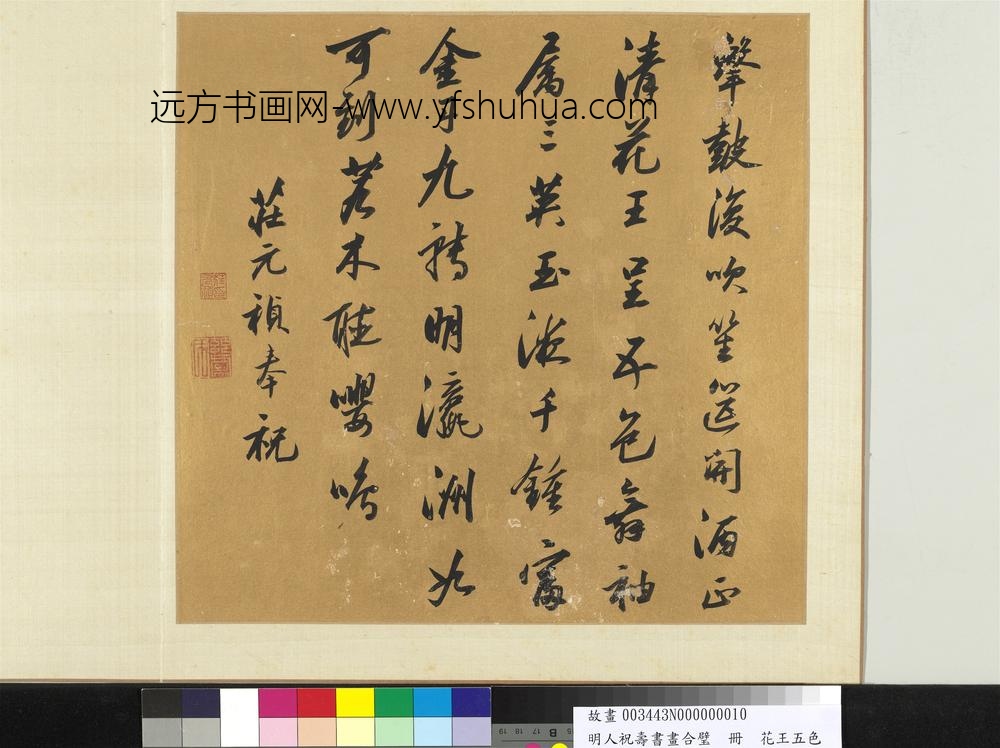 擊鼓復吹笙筵開酒正
清花王呈五色舞袖
属三英玉液千鍾富
金丹九轉明瀛洲如
可到若木聽嚶鳴
莊元禎奉祝
远方书画网-www.yfshuhua.com
故畫 003443N000000010
明人祝壽書畫合璧 冊 花王五色